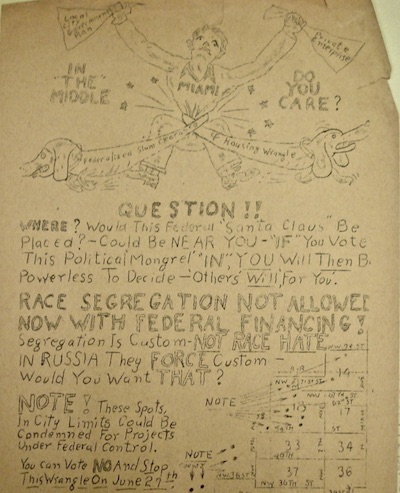 Private
Enterprise
IN
"THE"
MIDDLE
MIAMI
DO
YOU
CARE?
Slum
Housing Wrangle
QUESTION!!
WHERE? Would This Federal "Santa Claus" Be
Placed?-Could Be NEAR YOU-"IF" You Vote
This Political Mongrel "IN", YOU Will Then B
Powerless To Decide-Others Will For You.
RACE SEGREGATION NOT ALLOWED
NOW WITH FEDERAL FINANCING!
Segregation Is Custom-NOT RACE HATE
IN RUSSIA They FORCE Custom-
Would You Want THAT?
NOTE
14
17
NOTE! These Spots,
In City Limits Could Be
Condemned For Projects
Under Federal Control.
33
34
NOTE
37
36
You Can Vote NO And Stop
This Wrangle On June 27th